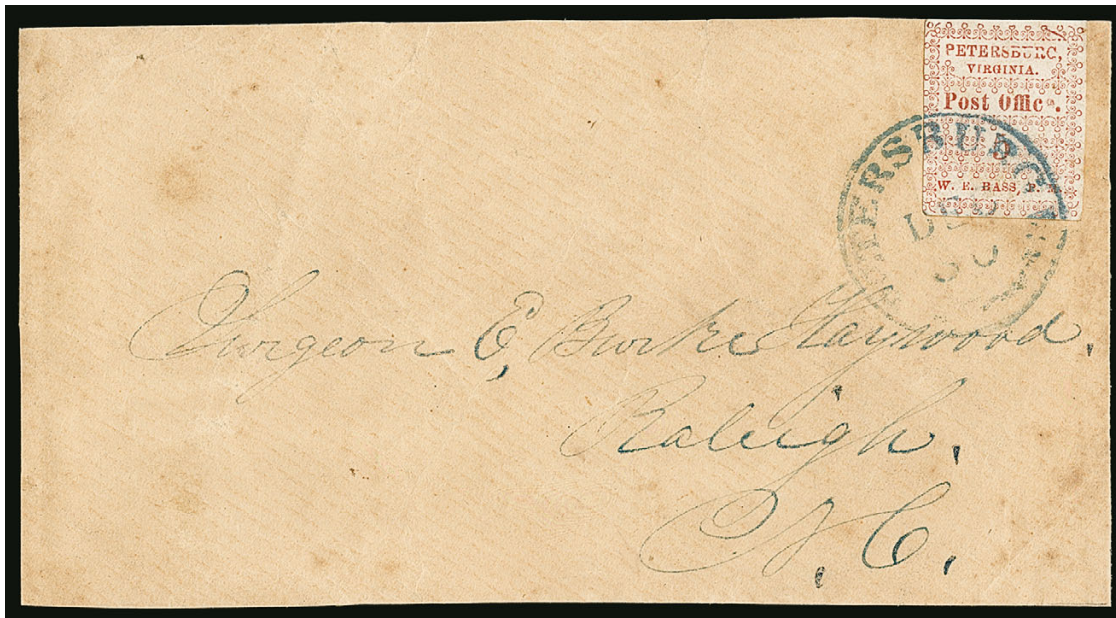 PETERSBURG,
VIRGINIA.
Post Offic.
5
W. E. BASS, P.
TERSBURG
Surgeon E. Burke Haywood,
Raleigh,
N. C.